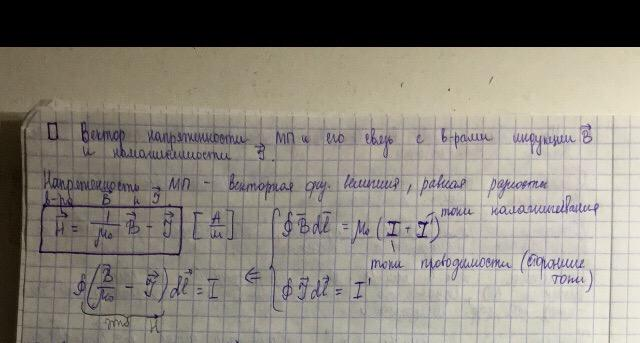 □ Вектор напряженности МП и его связь с в-рами индукции B⃗
и намагниченности J⃗.
Напряженность МП - векторная физ. величина, равная разности
в-ра B⃗ и J⃗
H⃗ = 1/μ₀ B⃗ - J⃗ [A/m] { ∮ B⃗ dl⃗ = μ₀ (I + I') токи намагничивания
токи проводимости (сторонние токи)
∮ (B⃗/μ₀ - J⃗) dl⃗ = I ⇐ { ∮ J⃗ dl⃗ = I'
это H⃗